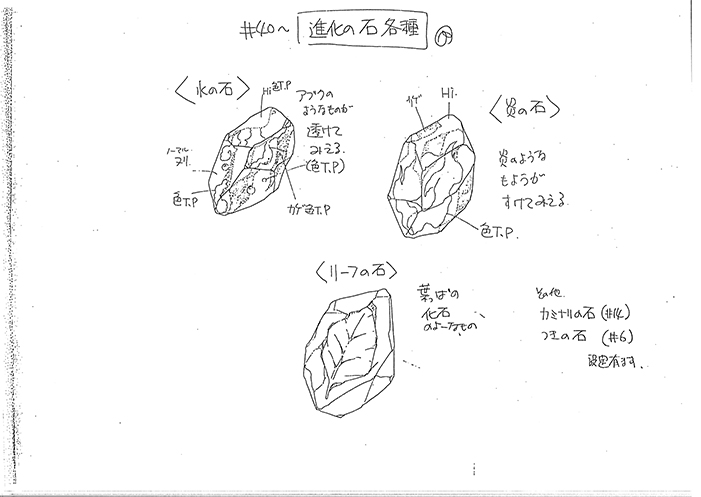 #40〜 進化の石各種
〈水の石〉
Hi色T.P
アブクの
ようなものが
透けて
みえる
(色T.P)
ノーマル
ヌリ
色T.P
カゲ色T.P
カゲ
Hi.
〈炎の石〉
炎のような
もようが
すけてみえる
色T.P.
〈リーフの石〉
葉っぱの
化石
のよーなもの
その他
カミナリの石(#14)
つきの石 (#6)
設定有ます.